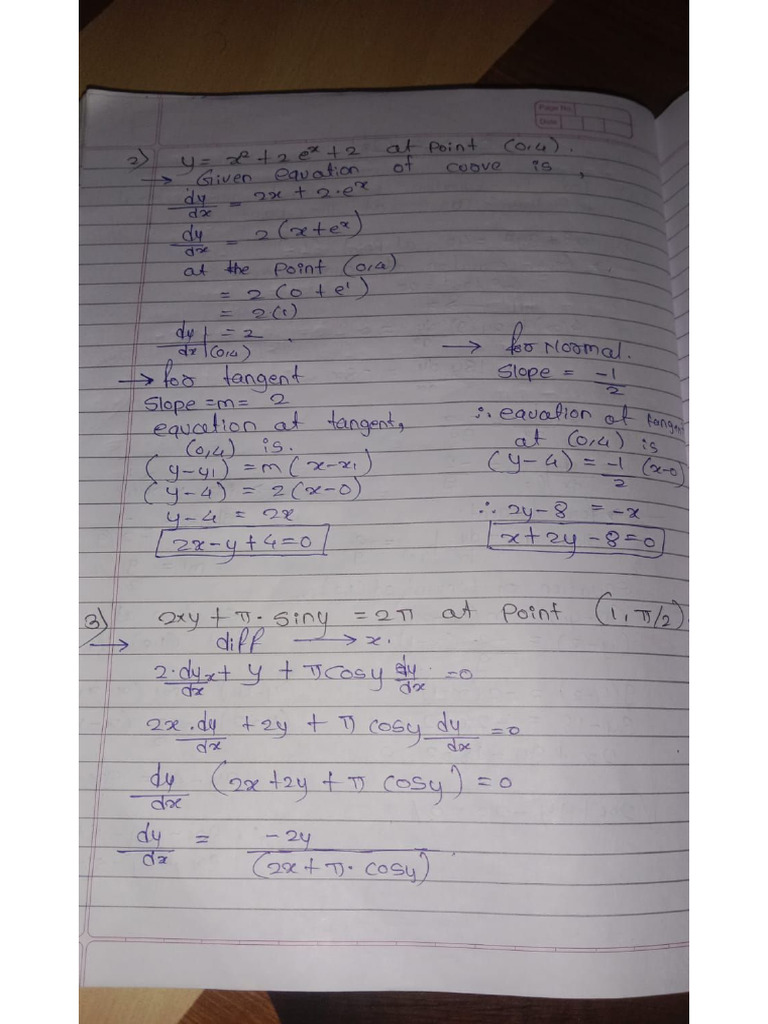 Page No.
Date
2) y = x² + 2e^x + 2 at point (0,4).
→ Given equation of cuove is,
dy/dx = 2x + 2·e^x
dy/dx = 2(x+e^x)
at the point (0,4)
= 2(0+e¹)
= 2(1)
dy/dx|(0,4) = 2
→ foo tangent
Slope = m = 2
equcation at tangent,
(0,4) is.
(y-y₁) = m(x-x₁)
(y-4) = 2(x-0)
y-4 = 2x
2x-y+4=0
→ foo Noomal.
Slope = -1/2
∴ equation of tangent
at (0,4) is
(y-4) = -1/2 (x-0)
∴ 2y-8 = -x
x+2y-8=0
3) 2xy + π·siny = 2π at point (1, π/2)
→ diff → x.
2·dy/dx x + y + πcosy dy/dx = 0
2x·dy/dx + 2y + π cosy dy/dx = 0
dy/dx (2x+2y+π cosy) = 0
dy/dx = -2y/(2x+π·cosy)